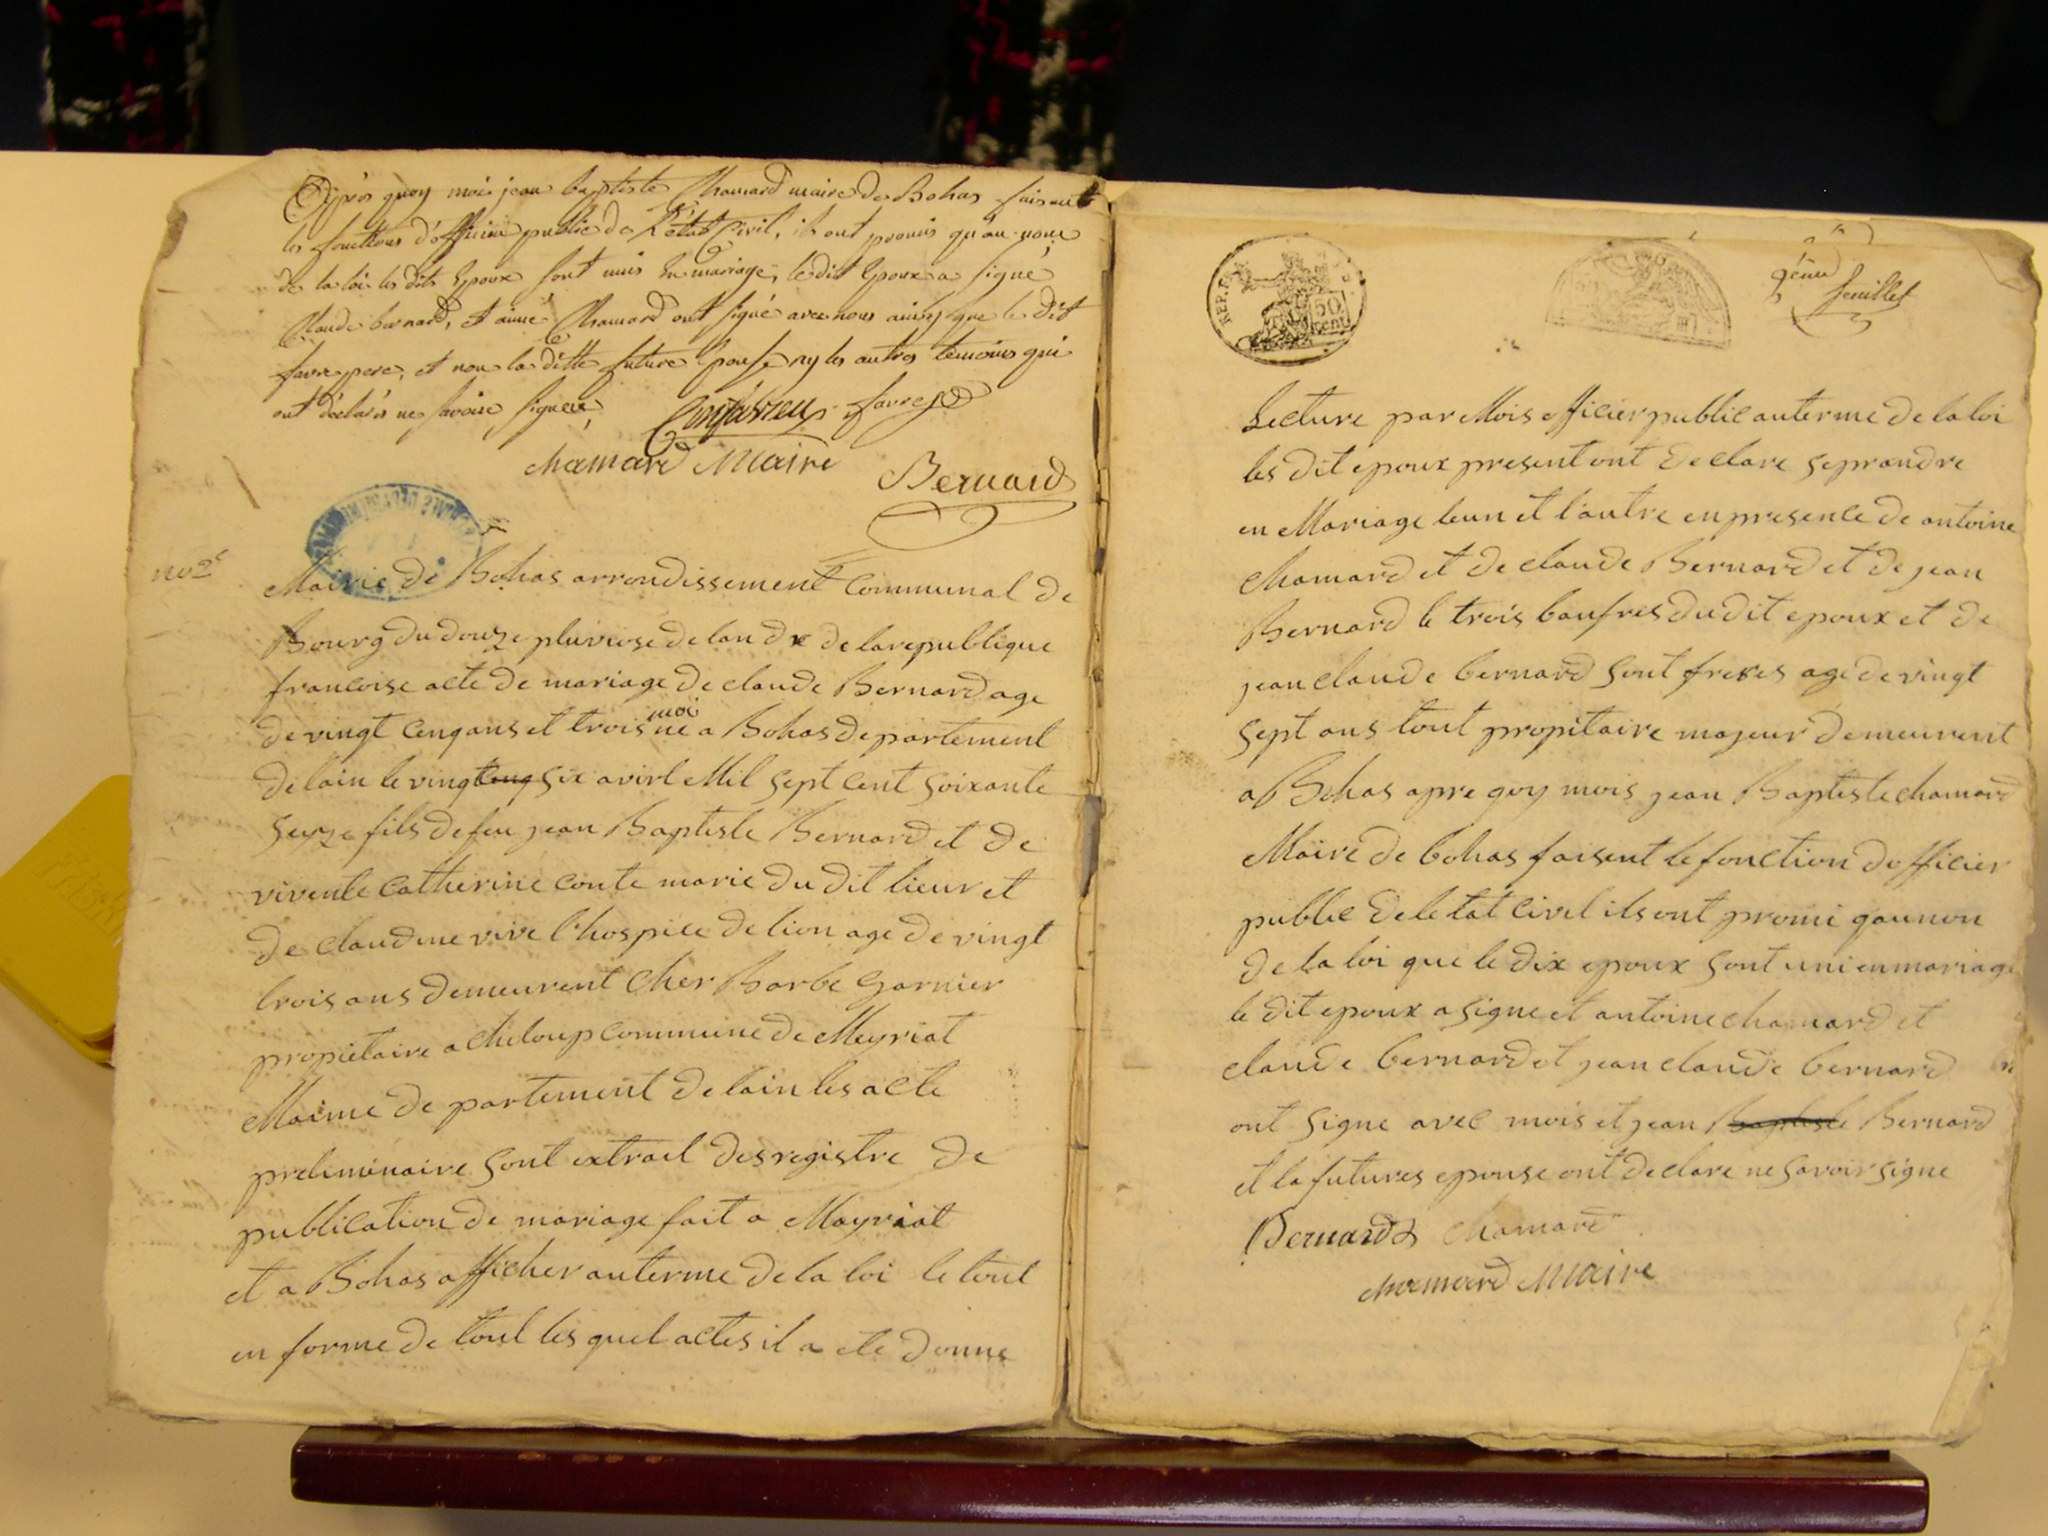 Après quoy moi jean baptiste Chamard maire de Bohas faisant
les fonctions d'officier public de l'état Civil, ils ont promis qu'au nom
de la loi les dits Epoux sont unis En mariage, le dit Epoux a signé
Claude bernard, et aimé Chamard ont signé avec nous ainsy que le dit
favre pere, et non la ditte future Epouse ny les autres temoins qui
ont déclarés ne savoir signer,
favre
chamard Maire
Bernard
no 2
Mairie de Bohas arrondissement Communal de
Bourg du douze pluviose de lan dix de la republique
francoise acte de mariage de claude Bernard age
de vingt cenq ans et trois moi ne a Bohas departement
de lain le vingt cenq six avirl Mil sept cent soixante
seyze fils de feu jean Baptiste Bernard et de
vivente catherine conte marie du dit lieur et
de claudine vive l'hospice de lion age de vingt
trois ans demeurent cher Barbe Garnier
propietaire a chiloup commune de Meyriat
Maime de partement de lain les acte
preliminaire sont extrait des registre de
publication de mariage fait a Mayriat
et a Bohas afficher au terme de la loi le tout
en forme de tout les quel actes il a ete donne
REP. FRA.
50 cent
9eme feuillet
Lecture par Mois officier public au terme de la loi
les dit epoux present ont declare se prandre
en Mariage leun et l'autre en presence de antoine
chamard et de claude Bernard et de jean
Bernard le trois baufres du dit epoux et de
jean claude bernard sont freres age de vingt
sept ans tout propitaire majeur demeurent
a Bohas apre qoy mois jean Baptiste chamard
Maire de bohas faisent le fonction dofficier
public de le tat civil ils ont promi qau non
de la loi que le dix epoux sont uni en mariage
le dit epoux a signe et antoine chamard et
claude bernard et jean claude bernard
ont signe avec mois et jean Baptiste Bernard
et la futures epouse ont declare ne savoir signe
Bernard chamard
chamard Maire